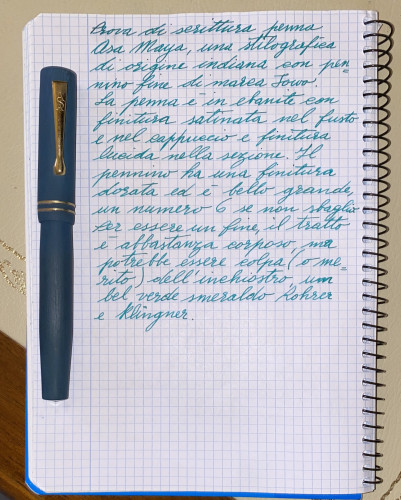 Prova di scrittura penna
Asa Maya, una stilografica
di origine indiana con pen=
nino fine di marca Jowo.
La penna è in ebanite con
finitura satinata nel fusto
e nel cappuccio e finitura
lucida nella sezione. Il
pennino ha una finitura
dorata ed è bello grande,
un numero 6 se non sbaglio
Per essere un fine, il tratto
è abbastanza corposo, ma
potrebbe essere colpa (o me=
rito) dell'inchiostro, un
bel verde smeraldo Rohrer
e Klingner.